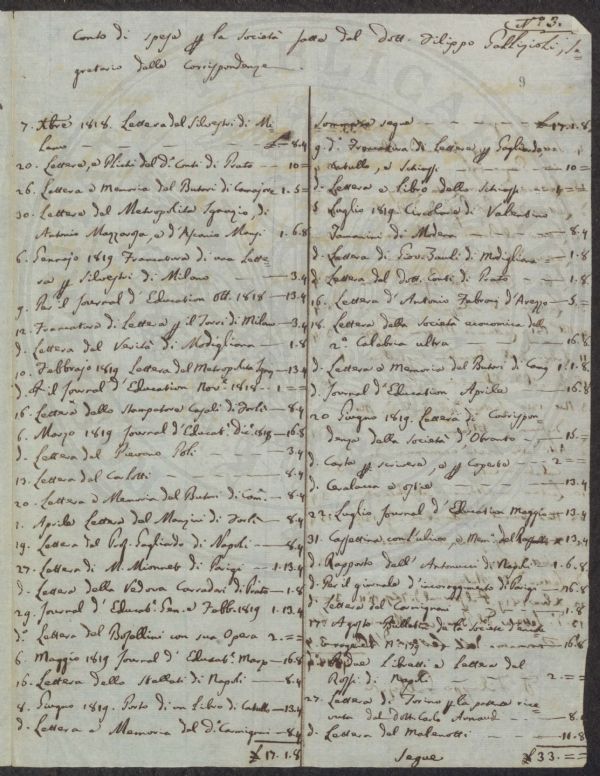 N.º 3.
Conto di spese p la Società fatte dal dott. Filippo Gallizioli, Se=
gretario della Corrispondenza.
9
7. Xbre 1818. Lettera del Silvestri di Mi=
lano — 8.4
20. Lettere, e Plichi del d.r Conti di Prato — 10 =
26. Lettera e Memoria del Butori di Camajore 1.5 =
30. Lettere del Metropolita Ignazio, di
Antonio Mazzarosa, e d'Ascanio Mansi 1.6.8
6. Gennajo 1819 Francatura di una Lette=
ra p Silvestri di Milano — 3.4
9. Per il Journal d'Education Ott. 1818 — 13.4
12. Francatura di Lettera p il Torri di Milano — 3.4
d. Lettera del Verità di Modigliana — 1.8
10. Febbrajo 1819 Lettera del Metropolita Ignaz. — 13.4
d. Per il Journal d'Education Nov.e 1818 — 1 = =
16. Lettera dello Stampatore Casali di Forlì — 8.4
6. Marzo 1819 Journal d'Educat. Dic.e 1819 — 16.8
d. Lettera del Pievano Poli — 3.4
13. Lettera del Carlotti — 8.4
20. Lettera e Memoria del Butori di Cam. — 8.4
1. Aprile Lettera del Manzini di Forlì — 8.4
19. Lettera del Prof. Gagliardo di Napoli — 8.4
27. Lettera di M. Mionnet di Parigi — 1.13.4
d. Lettera della Vedova Corradori di Prato — 1.8
29. Journal d'Educat. Gen. e Febb. 1819 1.13.4
d. Lettera del Bosellini con sua Opera 2. = =
6. Maggio 1819 Journal d'Educat. Marzo — 16.8
16. Lettera dello Stellati di Napoli — 8.4
8. Giugno 1819. Porto di un Libro di Catullo — 13.4
d. Lettera e Memoria del d.r Carmignani — 8.4
£ 17.1.8
Somma segue — £ 17.1.8
9. d. Francatura di Lettere p Gagliardo
Catullo, e Schiassi — 10 =
d. Lettera e Libro dello Schiassi
5 Luglio 1819. Circolare di Valentino
di Modena — 8.4
d. Lettera di Giov. Zauli di Modigliana — 1.8
d. Lettera del dott. Conti di Prato — 1.8
16. Lettera d'Antonio Fabroni d'Arezzo — 5. =
18. Lettera della Società economica della
2.a Calabria ultra — 16.8
d. Lettera e Memoria del Butori di Cam. 1.1.8
d. Journal d'Education Aprile — 16.8
20 Giugno 1819. Lettera di Corrispon=
denza della Società d'Otranto — 15. =
d. Carta p scrivere, e p Coperte — 2 = =
d. Ceralacca e ostie — 13.4
22. Luglio Journal d'Education Maggio — 13.4
31. Cassettina con l'ulivo, e Mem. del — 13.4
d. Rapporto dell'Antonucci di Napoli 1.6.8
d. Per il giornale d'incoraggimento di Parigi — 16.8
d. Lettera del Carmignani — 1.8
17. Agosto Bullettin de la Société d'
N.º — 16.8
Per due Libretti e Lettera del
Rossi di Napoli — 2. = =
27. Lettera di Torino p la patente rice
vuta dal dott. Carlo Arnaud — 8.
d. Lettera del Malenotti — 11.8
Segue £ 33. = =